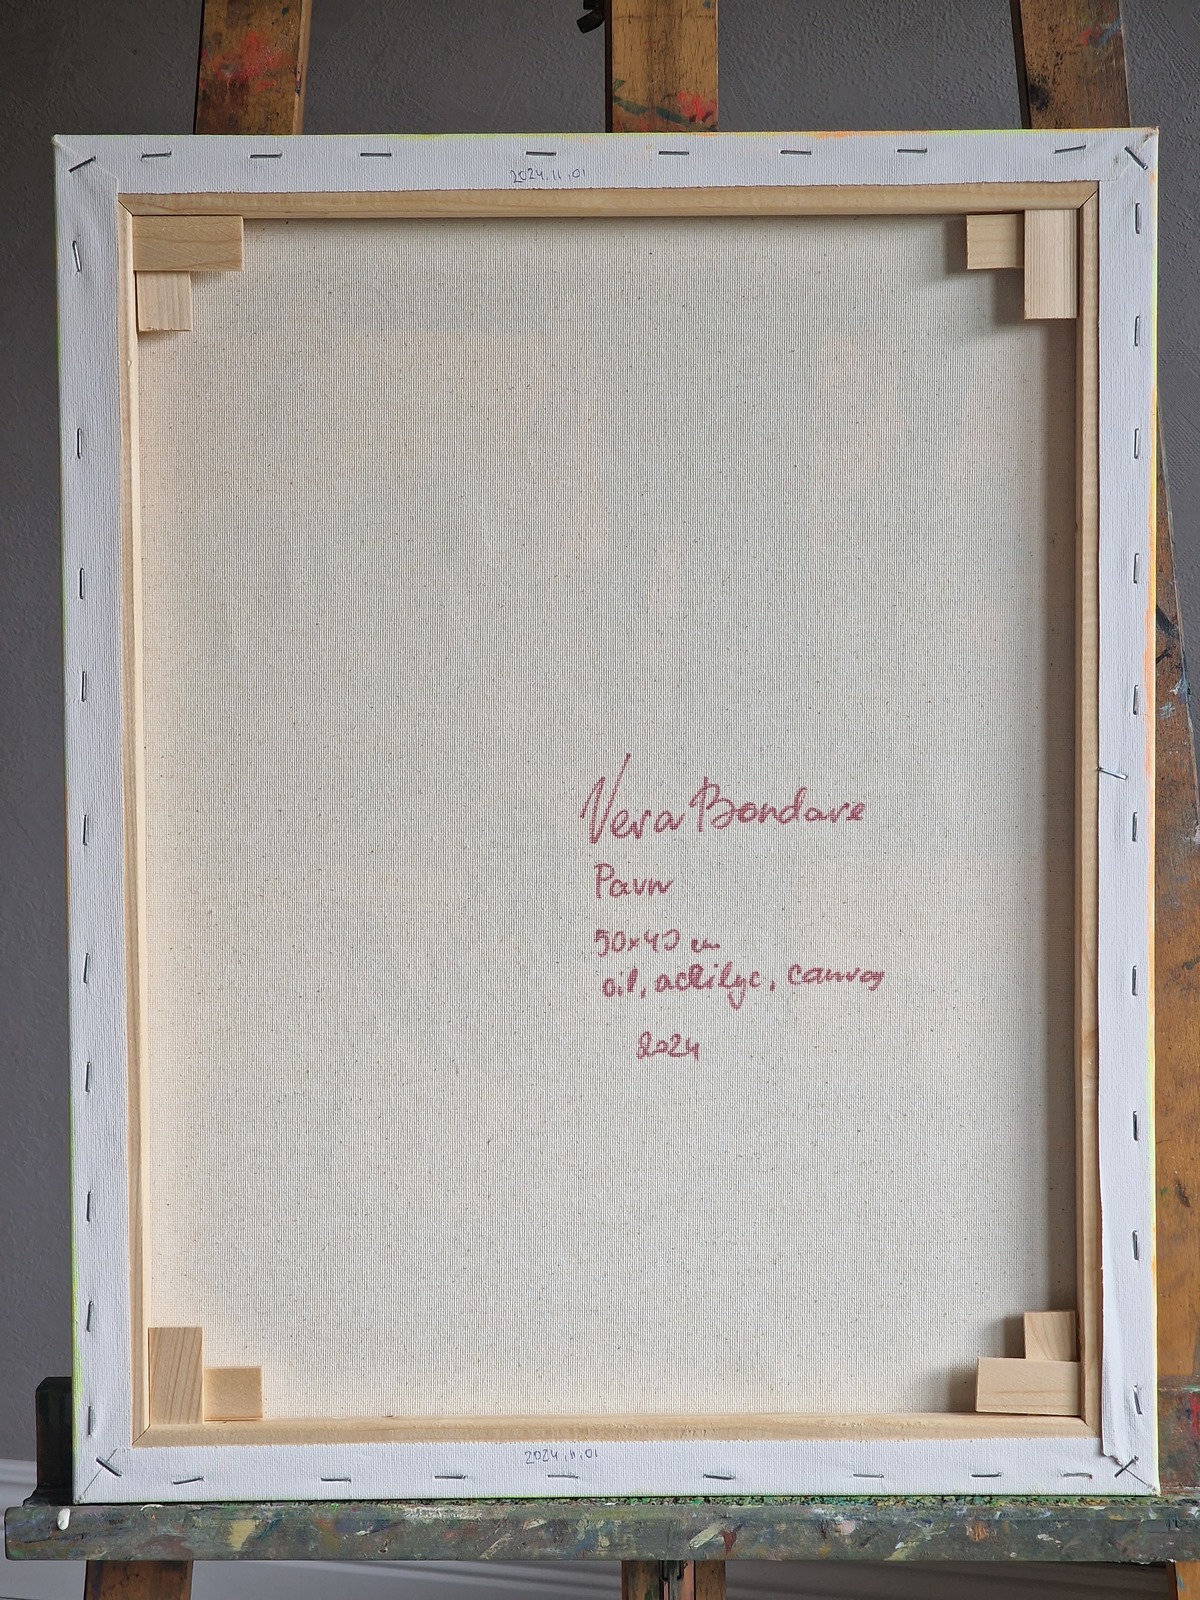 2024.11.01
Vera Bondare
Pavw
50x40 cm
oil, acrilyc, canvas
2024
2024.11.01